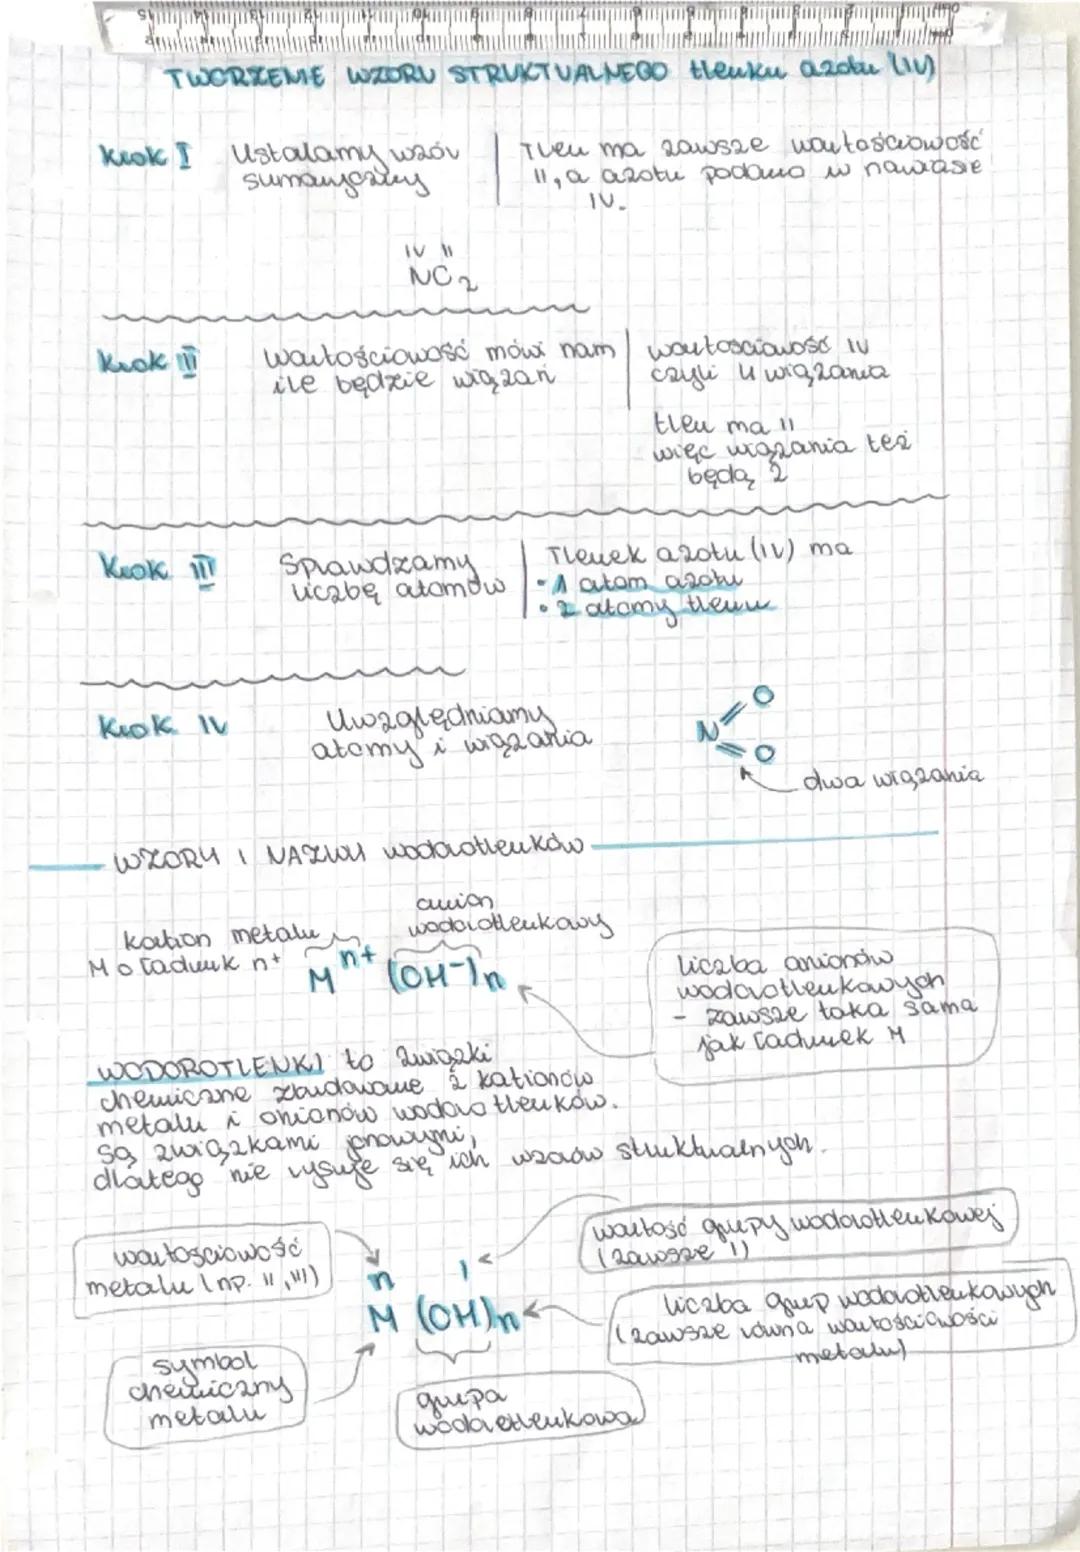 TWORZENIE WZORU STRUKTUALNEGO tlenku azotu (IV)
Krok I Ustalamy wzór sumaryczny
Tlen ma zawsze wartościowość
II, a azotu podano w nawiasie
IV.
IV II
NO2
Krok II
Wartościowość mówi nam
ile będzie wiązań
wartościowość IV
czyli 4 wiązania
tlen ma II
więc wiązania też
będą 2
Krok III
Sprawdzamy
liczbę atomów
Tlenek azotu (IV) ma
• 1 atom azotu
• 2 atomy tlenu
Krok IV
Uwzględniamy
atomy i wiązania
O
N
O
dwa wiązania
WZORY I NAZWY wodorotlenków
kation metalu
M o ładunk n+
anion
wodorotlenkowy
M n+ (OH-)n
liczba anionów
wodorotlenkowych
- zawsze taka sama
jak ładunek M
WODOROTLENKI to związki
chemiczne zbudowane z kationów
metalu i anionów wodorotlenków.
Są związkami jonowymi,
dlatego nie rysuje się ich wzorów struktualnych.
wartość grupy wodorotlenkowej
(zawsze I)
wartościowość
metalu (np. II, III)
n I
M (OH)n
liczba grup wodorotlenkowych
(zawsze równa wartościwości
metalu)
symbol
chemiczny
metalu
grupa
wodorotlenkowa